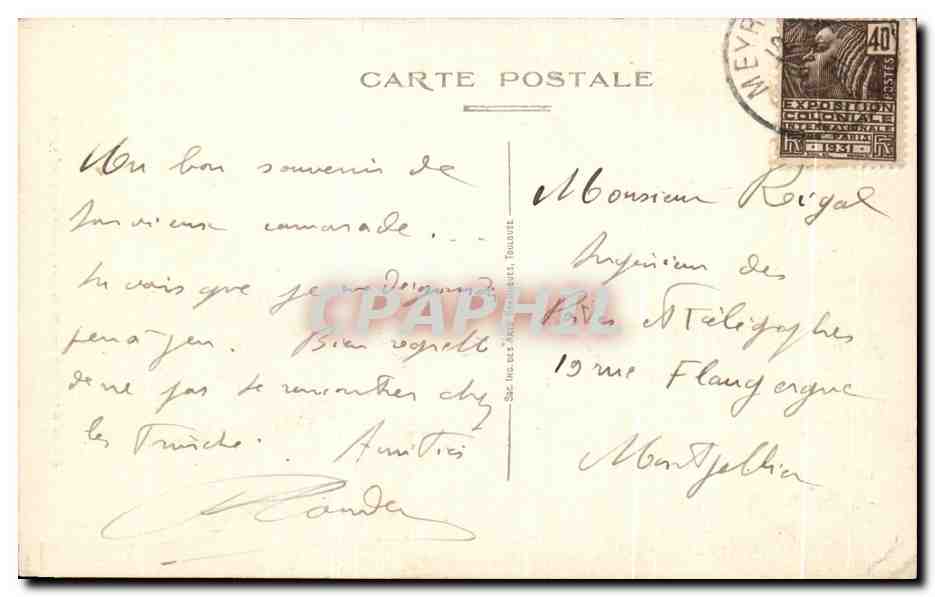 CARTE POSTALE
MEYR
40c
POSTES
EXPOSITION
COLONIALE
INTERNATIONALE
DE PARIS
1931
Un bon souvenir de
ton vieux camarade...
tu vois que je me
peu à peu. Bien regretté
de ne pas te rencontrer chez
les Amitiés
Soc. Ing. des Arts Graphiques, Toulouse
Monsieur Rigal
Ingénieur des
Postes & Télégraphes
19 rue Flaugergue
Montpellier
CPAPHIL